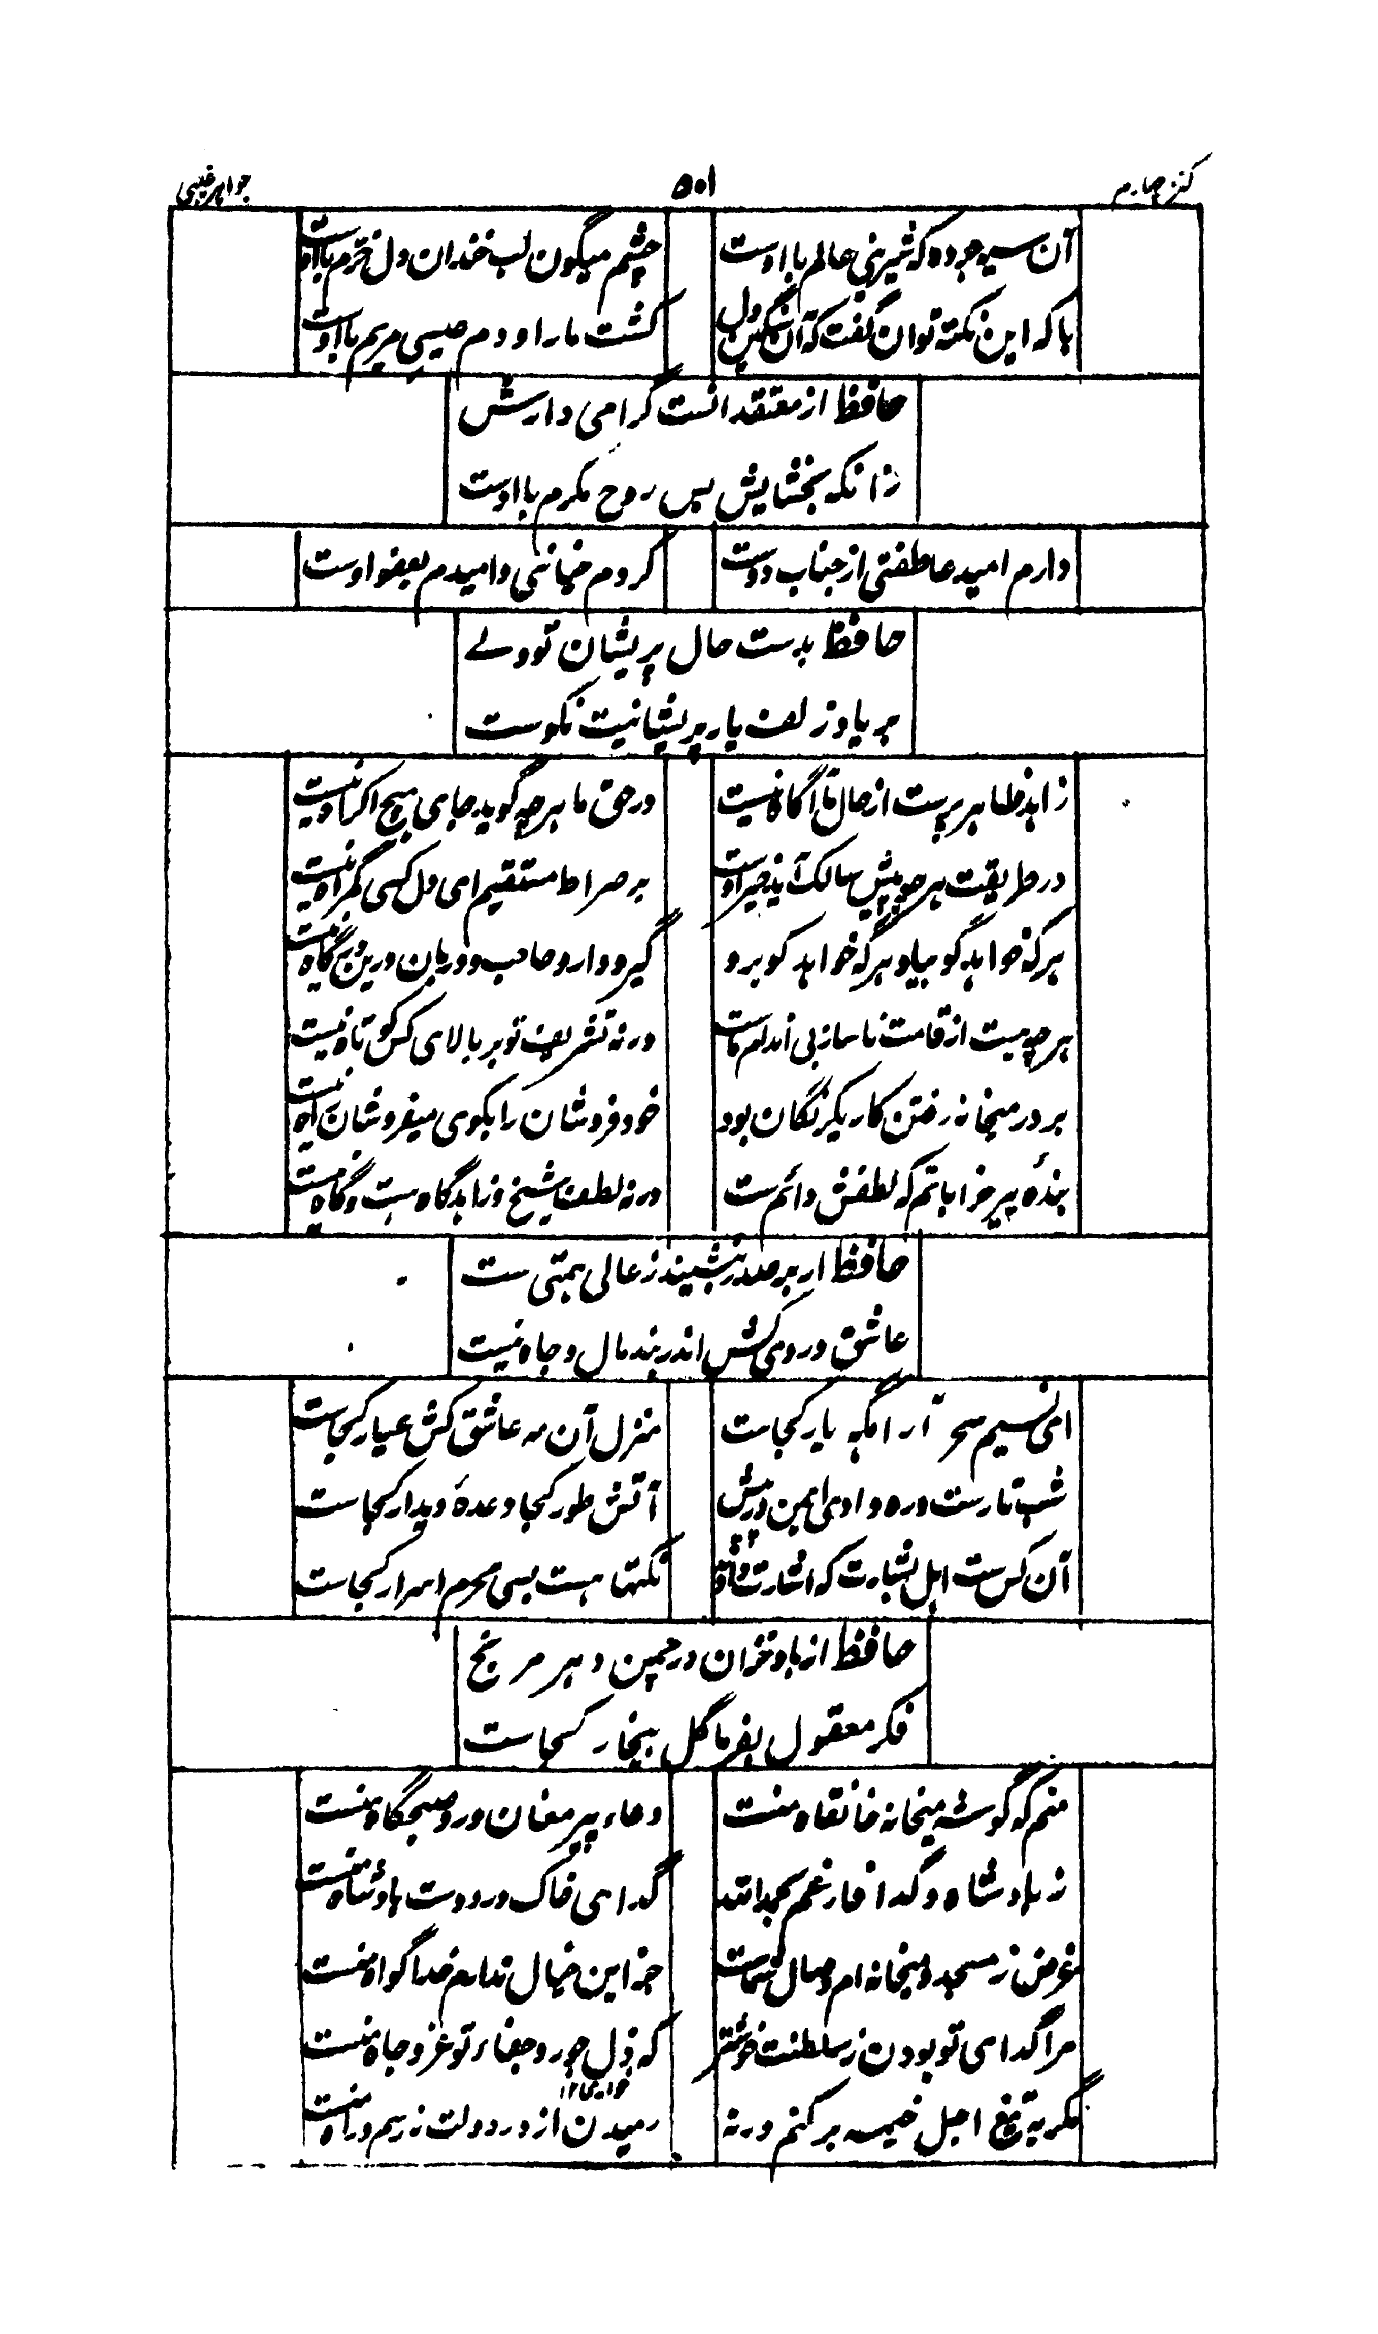 کنز چهارم
۵۰۱
جواهر غیبی
آن سیه چرده که شیرینی عالم با اوست
چشم میگون لب خندان دل خرم با اوست
با که این نکته توان گفت که آن سنگین دل
کشت ما را و دم عیسی مریم با اوست
حافظ از معتقدانست گرامی دارش
زانکه بخشایش بس روح مکرم با اوست
دارم امید عاطفتی از جناب دوست
کردم خیانتی و امیدم بعفو اوست
حافظ بدست حال پریشان تو ولے
بر یاد زلف یار پریشانیت نکوست
زاهد ظاهر پرست از حال ما آگاه نیست
در حق ما هر چه گوید جای هیچ اکراه نیست
در طریقت هر چه پیش سالک آید خیر اوست
بر صراط مستقیم ای دل کسی گمراه نیست
هر که خواهد گو بیا و هر که خواهد گو برو
گیر و دار و حاجب و دربان درین درگاه نیست
هر چه هست از قامت ناساز بی اندام ماست
ورنه تشریف تو بر بالای کس کوتاه نیست
بر در میخانه رفتن کار یکرنگان بود
خود فروشان را بکوی میفروشان راه نیست
بندهٔ پیر خراباتم که لطفش دائم ست
ورنه لطف شیخ و زاهد گاه هست و گاه نیست
حافظ ار بر صدر ننشیند ز عالی همتی ست
عاشق دردی کش اندر بند مال و جاه نیست
ای نسیم سحر آرامگه یار کجاست
منزل آن مه عاشق کش عیار کجاست
شب تارست و ره وادی ایمن در پیش
آتش طور کجا وعدهٔ دیدار کجاست
آن کس ست اهل بشارت که اشارت داند
نکتها هست بسی محرم اسرار کجاست
حافظ از باد خزان در چمن دهر مرنج
فکر معقول بفرما گل بیخار کجاست
منم که گوشه میخانه خانقاه منست
دعاء پیر مغان ورد صبحگاه منست
ز پادشاه و گدا فارغم بحمدالله
گدای خاک در دوست پادشاه منست
غرض ز مسجد و میخانه ام وصال شماست
جز این خیال ندارم خدا گواه منست
مرا گدای تو بودن ز سلطنت خوشتر
که ذل جور و جفاء تو عز و جاه منست
خواری ۱۲
مگر به تیغ اجل خیمه برکنم ورنه
رمیدن از در دولت نه رسم و راه منست